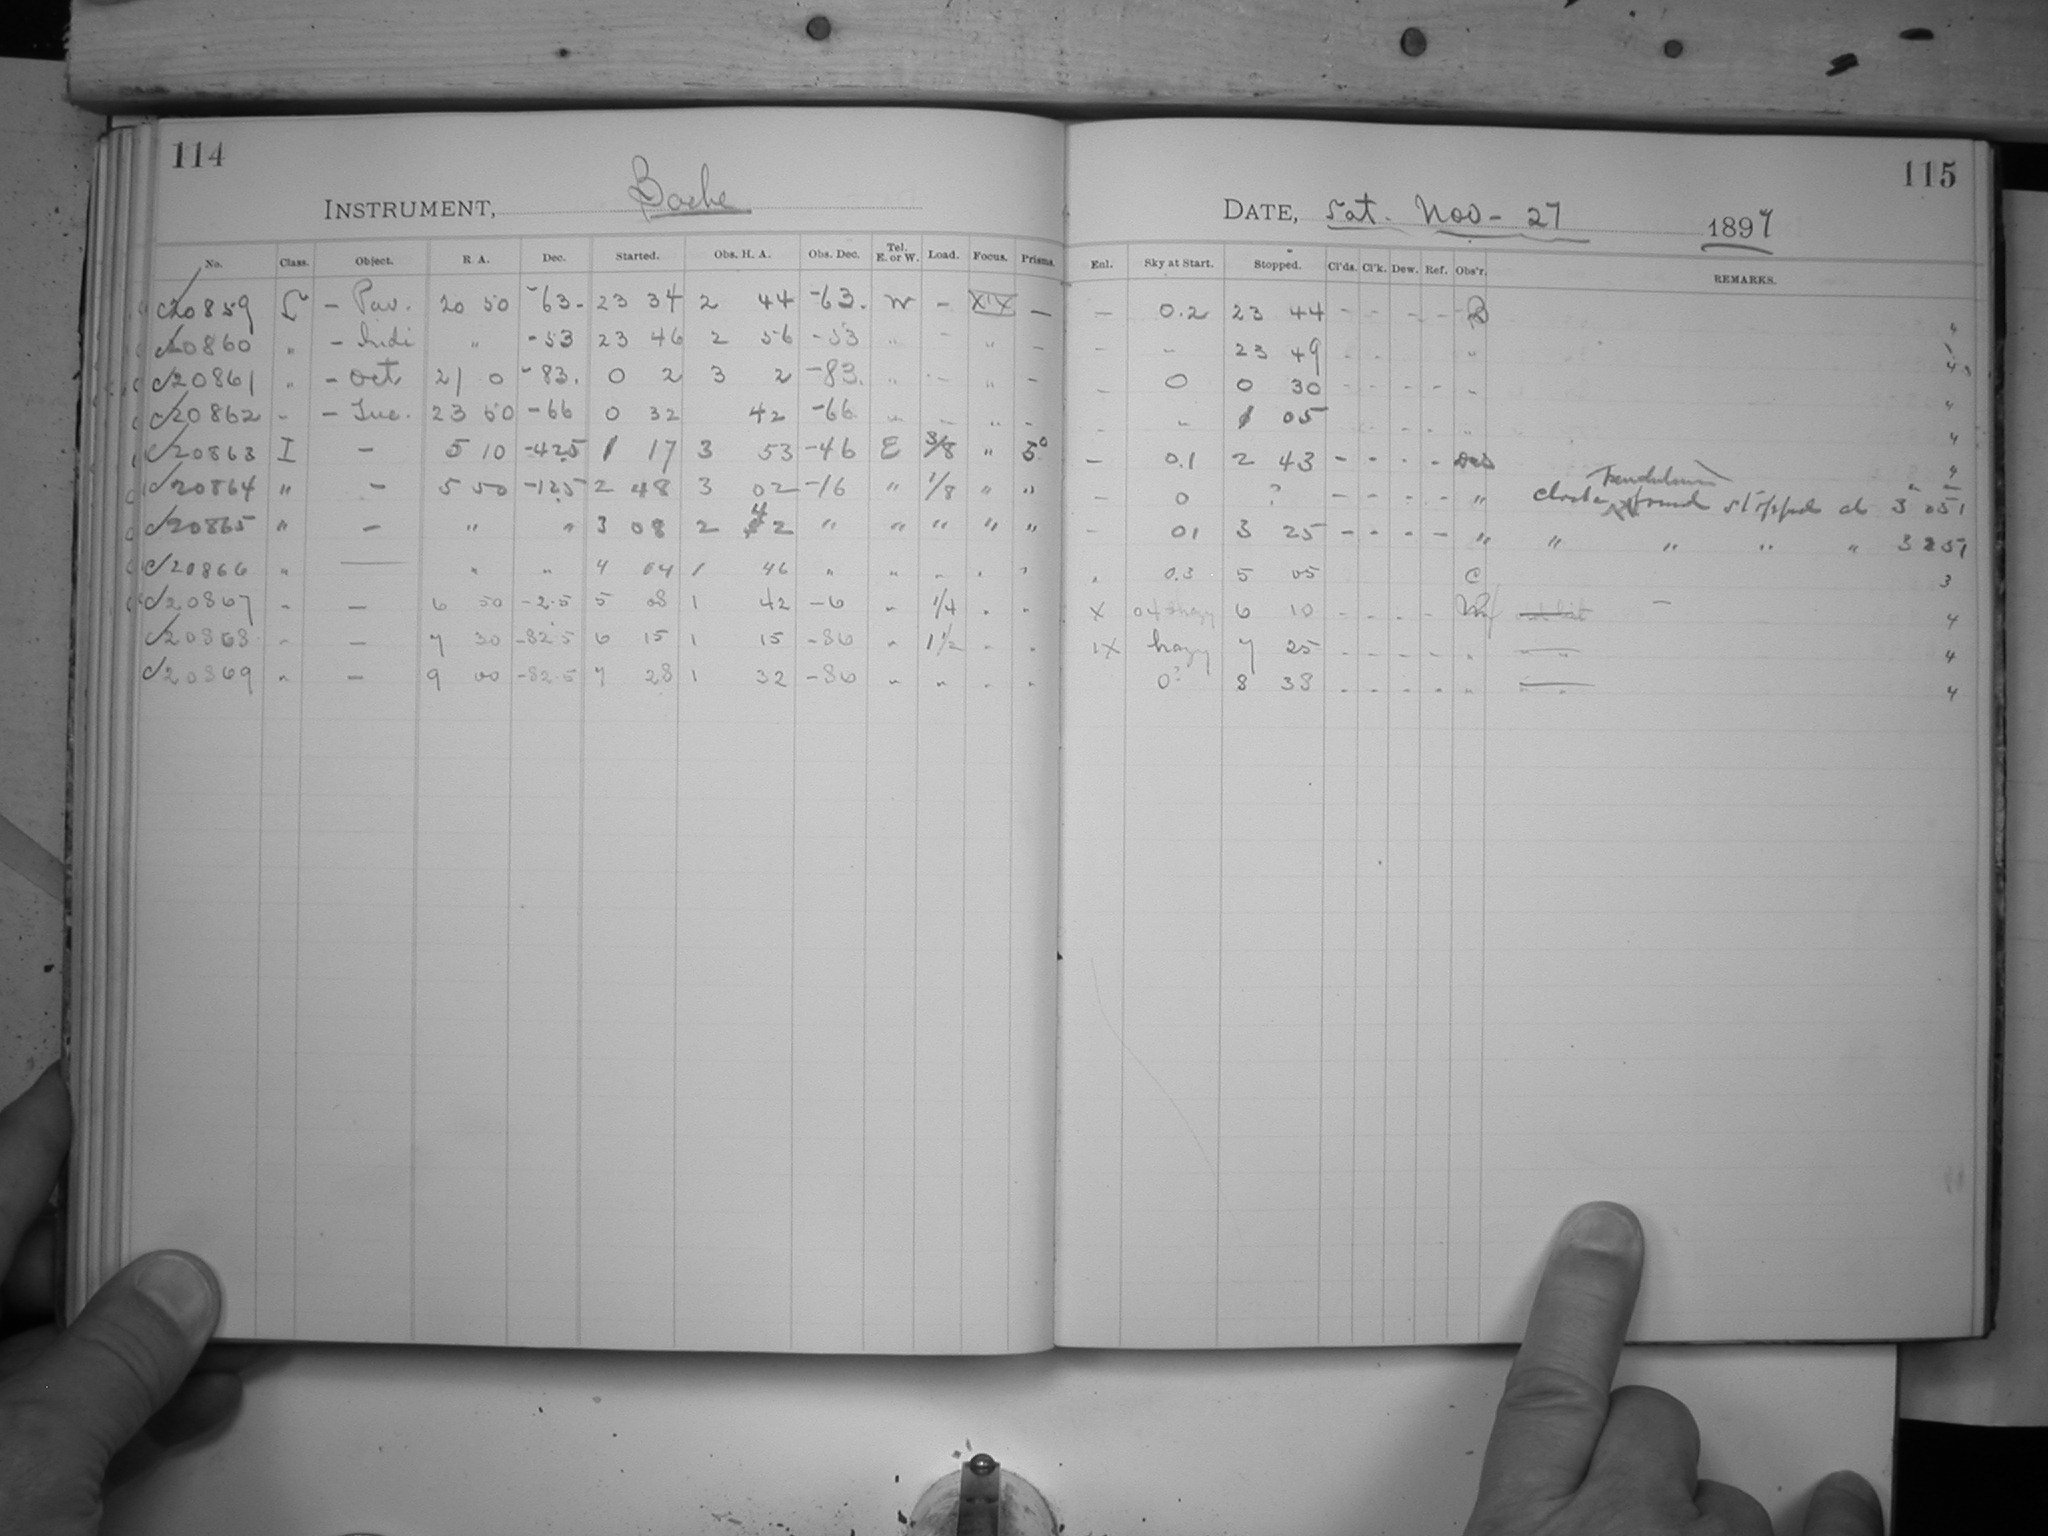 114
INSTRUMENT, Bache
No. Class. Object. R. A. Dec. Started. Obs. H. A. Obs. Dec. Tel. E. or W. Load. Focus. Prisms.
c20859 - Pav. 20 50 -63- 23 34 2 44 -63. W - XIX -
c20860 " - Indi " -53 23 46 2 56 -53 " - " -
c20861 " - Oct 21 0 -83. 0 2 3 2 -83. " - " -
c20862 - - Tuc. 23 50 -66 0 32 42 -66 " " " -
c20863 I - 5 10 -42.5 1 17 3 53 -46 E 3/8 " 5°
c20864 " - 5 50 -12.5 2 48 3 02 -16 " 1/8 " "
c20865 " - " " 3 08 2 42 " " " " "
c20866 " - " " 4 04 1 46 " " " " "
c20867 " - 6 50 -2.5 5 08 1 42 -6 " 1/4 " "
c20868 " - 7 30 -82.5 6 15 1 15 -86 " 1 1/2 " "
c20869 " - 9 00 -82.5 7 28 1 32 -86 " " " "
115
DATE, Sat. Nov - 27 1897
Enl. Sky at Start. Stopped. Cl'ds. Cl'k. Dew. Ref. Obs'r. REMARKS.
- 0.2 23 44 - - - - 4
- - 23 49 - - " 4
- 0 0 30 - - - - " 4
- " 1 05 " 4
- 0.1 2 43 - - - - 4
- 0 ? - - - - " Pendulum
clock found stopped at 3 05 1
- 01 3 25 - - - - " " " " " 3 25 1
" 0.3 5 05 C 3
X 04 hazy 6 10 - - - - - 4
IX hazy 7 25 - - - - " 4
0? 8 38 - - - - " 4